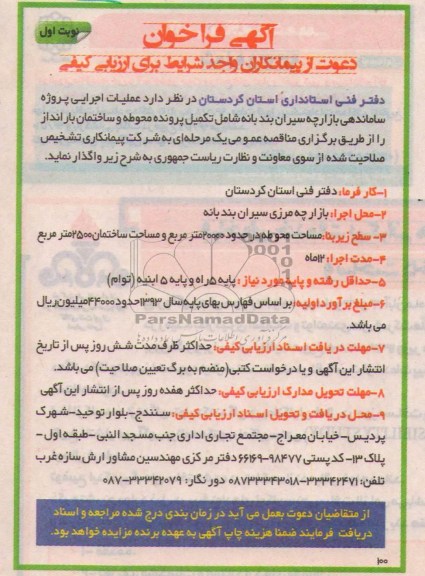 نوبت اول
آگهی فراخوان
دعوت از پیمانکاران واجد شرایط برای ارزیابی کیفی
دفتر فنی استانداری استان کردستان در نظر دارد عملیات اجرایی پروژه
ساماندهی بازارچه سیران بند بانه شامل تکمیل پرونده محوطه و ساختمان بارانداز
را از طریق برگزاری مناقصه عمومی یک مرحله‌ای به شرکت پیمانکاری تشخیص
صلاحیت شده از سوی معاونت و نظارت ریاست جمهوری به شرح زیر واگذار نماید.
۱-کارفرما: دفتر فنی استان کردستان
۲-محل اجرا: بازارچه مرزی سیران بند بانه
۳- سطح زیربنا: مساحت محوطه در حدود ۲۰۰۰۰متر مربع و مساحت ساختمان ۲۵۰۰متر مربع
۴-مدت اجرا: ۱۲ماه
۵-حداقل رشته و پایه مورد نیاز : پایه ۵ راه و پایه ۵ ابنیه (توام)
۶-مبلغ برآورد اولیه: بر اساس فهارس بهای پایه سال ۱۳۹۳حدود ۴۴۰۰۰میلیون ریال
می باشد.
ParsNamadData
۷-مهلت دریافت اسناد ارزیابی کیفی: حداکثر ظرف مدت شش روز پس از تاریخ
انتشار این آگهی و با درخواست کتبی(منضم به برگ تعیین صلاحیت) می باشد.
۸-مهلت تحویل مدارک ارزیابی کیفی: حداکثر هفده روز پس از انتشار این آگهی
۹-محل دریافت و تحویل اسناد ارزیابی کیفی: سنندج-بلوار توحید-شهرک
پردیس-خیابان معراج-مجتمع تجاری اداری جنب مسجد النبی-طبقه اول-
پلاک ۱۳-کد پستی ۹۸۴۷۷-۶۶۱۶۹ دفتر مرکزی مهندسین مشاور ارش سازه غرب
تلفن: ۳۳۲۴۲۴۷۱-۰۸۷۳۳۳۴۳۰۱۸ دورنگار: ۳۳۳۴۲۰۷۹-۰۸۷
از متقاضیان دعوت بعمل می آید در زمان بندی درج شده مراجعه و اسناد
دریافت فرمایند ضمنا هزینه چاپ آگهی به عهده برنده مزایده خواهد بود.
۱۰۰